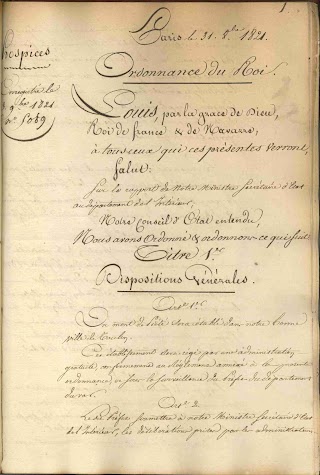 1.
Paris le 31. 8.bre 1821.
Hospices
Enregistré le
9.bre 1821
n.º 5049
Ordonnance du Roi.
Louis, par la grace de Dieu,
Roi de france & de Navarre,
à tous ceux qui ces présentes verront,
Salut:
Sur le rapport de notre Ministre Secrétaire d'état
au département de l'intérieur,
Notre Conseil d'Etat entendu,
Nous avons Ordonné & ordonnons ce qui suit
Titre 1.er
Dispositions Générales.
Art. 1.er
Un mont de Piété sera établi dans notre bonne
ville de Toulon.
Cet établissement sera régi par une administration
gratuite et conformément au Règlement annexé à la présente
ordonnance, sous la surveillance du Préfet du département
du var.
Art. 2.
Le Préfet soumettra à notre Ministre Secrétaire d'état
de l'intérieur, les délibérations prises par les administrateurs